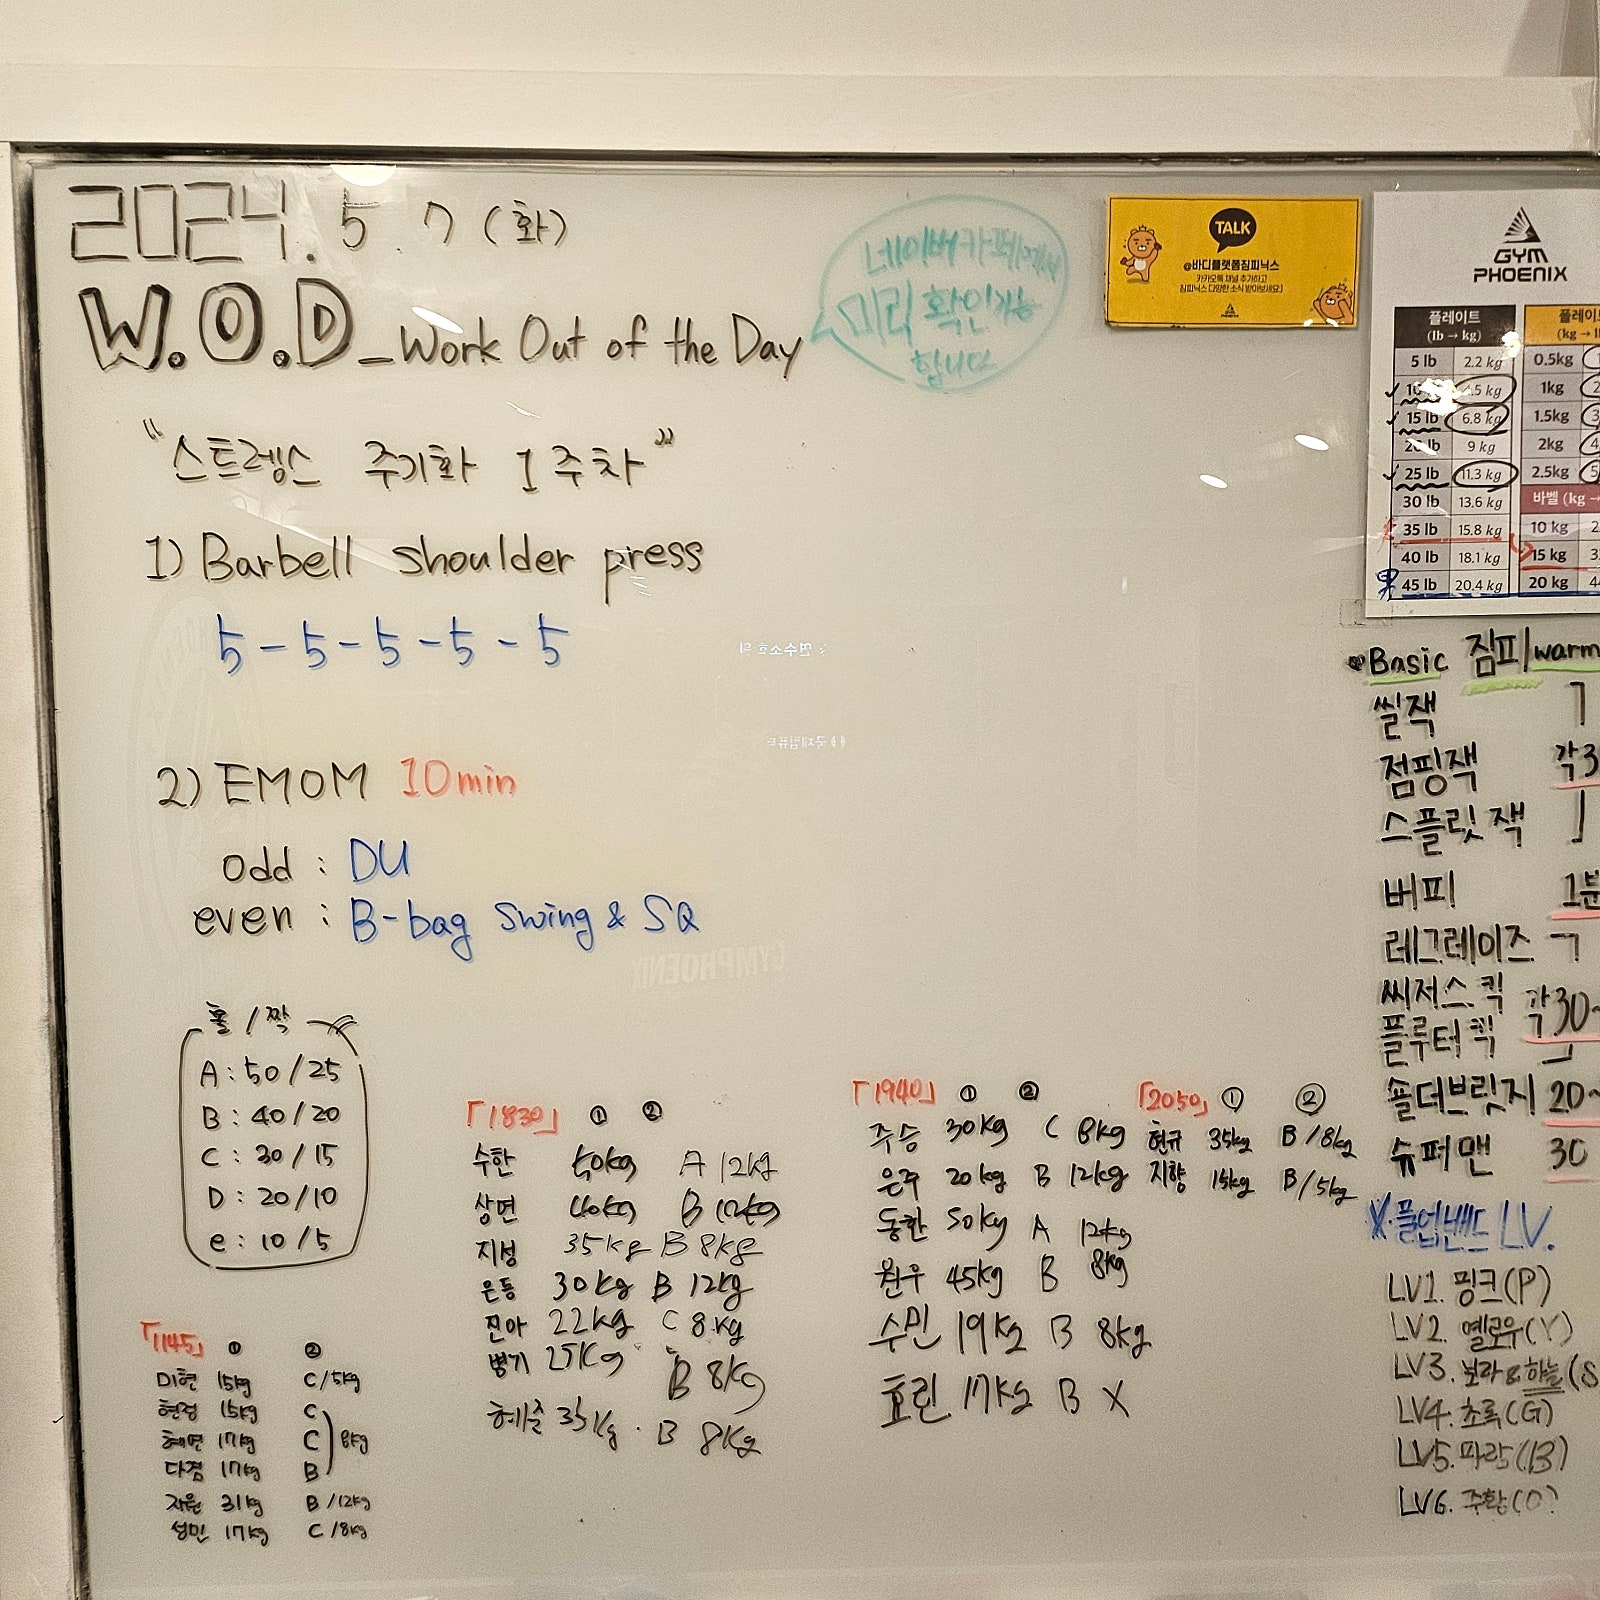 2024. 5. 7 (화)
W.O.D_Work Out of the Day
네이버카페에서
미리 확인가능
합니다
"스트렝스 주기화 1주차"
1) Barbell shoulder press
5 - 5 - 5 - 5 - 5
2) EMOM 10min
odd : DU
even : B-bag swing & SQ
홀 / 짝
A : 50 / 25
B : 40 / 20
C : 30 / 15
D : 20 / 10
e : 10 / 5
「1145」 ① ②
미현 15kg C/5kg
현정 15kg C
혜연 17kg C 8kg
다겸 17kg B
자윤 31kg B/12kg
성민 17kg C/8kg
「1830」 ① ②
수한 50kg A 12kg
상면 40kg B 12kg
지성 35kg B 8kg
은동 30kg B 12kg
진아 22kg C 8kg
병기 25kg B 8kg
35kg B 8kg
「1940」 ① ②
주승 30kg C 8kg
은주 20kg B 12kg
동한 50kg A 12kg
원우 45kg B 8kg
수민 19kg B 8kg
효린 17kg B X
「2050」 ① ②
현규 35kg B/8kg
지향 15kg B/5kg
TALK
@바디플랫폼짐피닉스
카카오톡 채널 추가하고
짐피닉스 다양한 소식 받아보세요!
PHOENIX
GYM
PHOENIX
플레이트
(lb → kg)
5 lb 2.2 kg
15 lb 6.8 kg
9 kg
25 lb 11.3 kg
30 lb 13.6 kg
35 lb 15.8 kg
40 lb 18.1 kg
45 lb 20.4 kg
(kg →
0.5kg
1kg
1.5kg
2kg
2.5kg
바벨 (kg →
10 kg
15 kg
20 kg
Basic 짐피 warm
씰잭
점핑잭 각3
스플릿 잭
버피 1분
레그레이즈
씨저스 킥 각30
플루터 킥
숄더브릿지 20~
슈퍼맨 30
풀업밴드 LV.
LV1. 핑크(P)
LV2. 옐로우(Y)
LV3. 보라&하늘(S
LV4. 초록(G)
LV5. 파랑(B)
LV6. 주황(O)